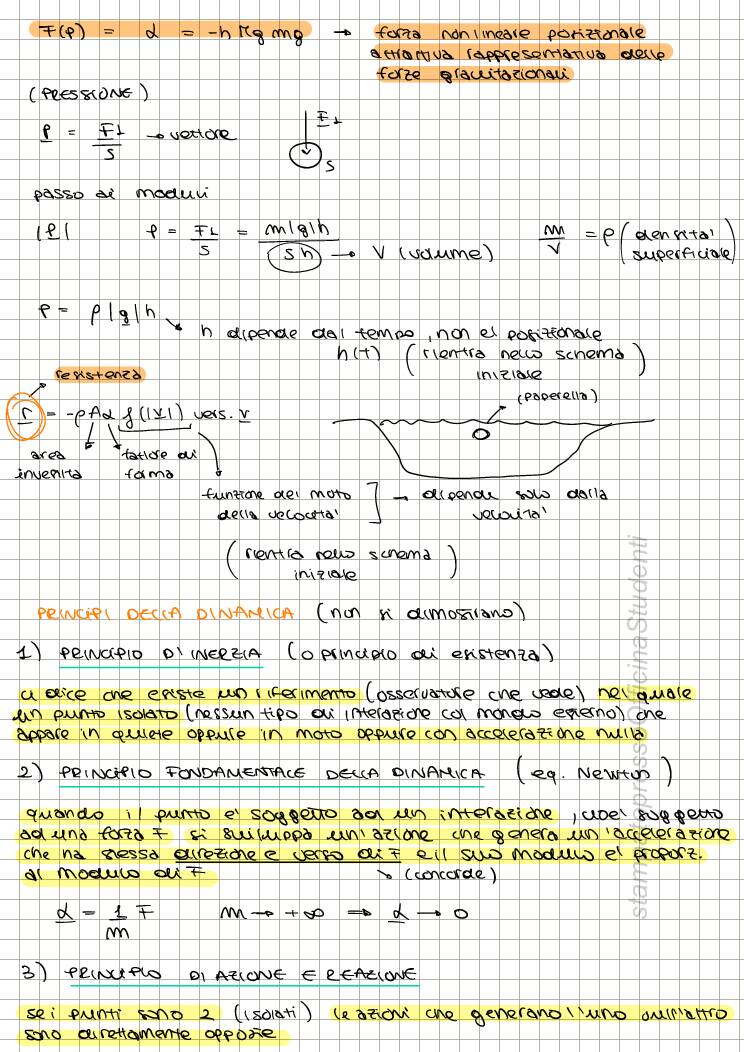 F(P) = α = -h Mg mg → forza non lineare posizionale
attrattiva rappresentativa delle
forze gravitazionali
(PRESSIONE)
P = F⊥/S → vettore
F⊥
S
passo ai moduli
|P| P = F⊥/S = m|g|h/Sh → V (volume) m/V = ρ (densita' superficiale)
P = ρ|g|h
h dipende dal tempo, non e' posizionale
h(t) (rientra nello schema
iniziale)
resistenza
r = -ρAα f(|v|) vers. v
(paperella)
area
investita
fattore di
forma
funzione del moto
della velocita'
→ dipende solo dalla
velocita'
(rientra nello schema
iniziale)
PRINCIPI DELLA DINAMICA (non si dimostrano)
1) PRINCIPIO D'INERZIA (o principio di esistenza)
ci dice che esiste un riferimento (osservatore che vede) nel quale
un punto isolato (nessun tipo di interazione col mondo esterno) che
appare in quiete oppure in moto oppure con accelerazione nulla
2) PRINCIPIO FONDAMENTALE DELLA DINAMICA (eq. Newton)
quando il punto e' soggetto ad un interazione, cioe' soggetto
ad una forza F si sviluppa un'azione che genera un'accelerazione
che ha stessa direzione e verso di F e il suo modulo e' proporz.
al modulo di F (concorde)
α = 1/m F m → +∞ ⇒ α → 0
3) PRINCIPIO DI AZIONE E REAZIONE
se i punti sono 2 (isolati) le azioni che generano l'uno sull'altro
sono direttamente opposte